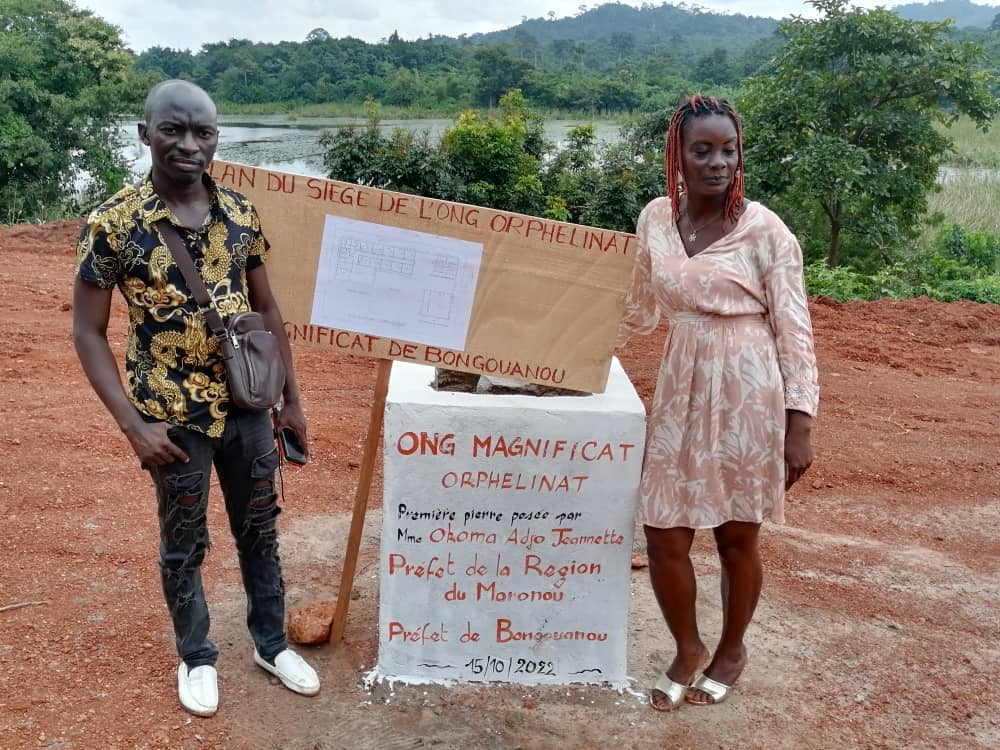 LAN DU SIEGE DE L'ONG ORPHELINAT
GNIFICAT DE BONGOUANOU
ONG MAGNIFICAT
ORPHELINAT
Première pierre posée par
Mme Okoma Adjo Jeannette
Préfet de la Region
du Moronou
Préfet de Bongouanou
15/10/2022